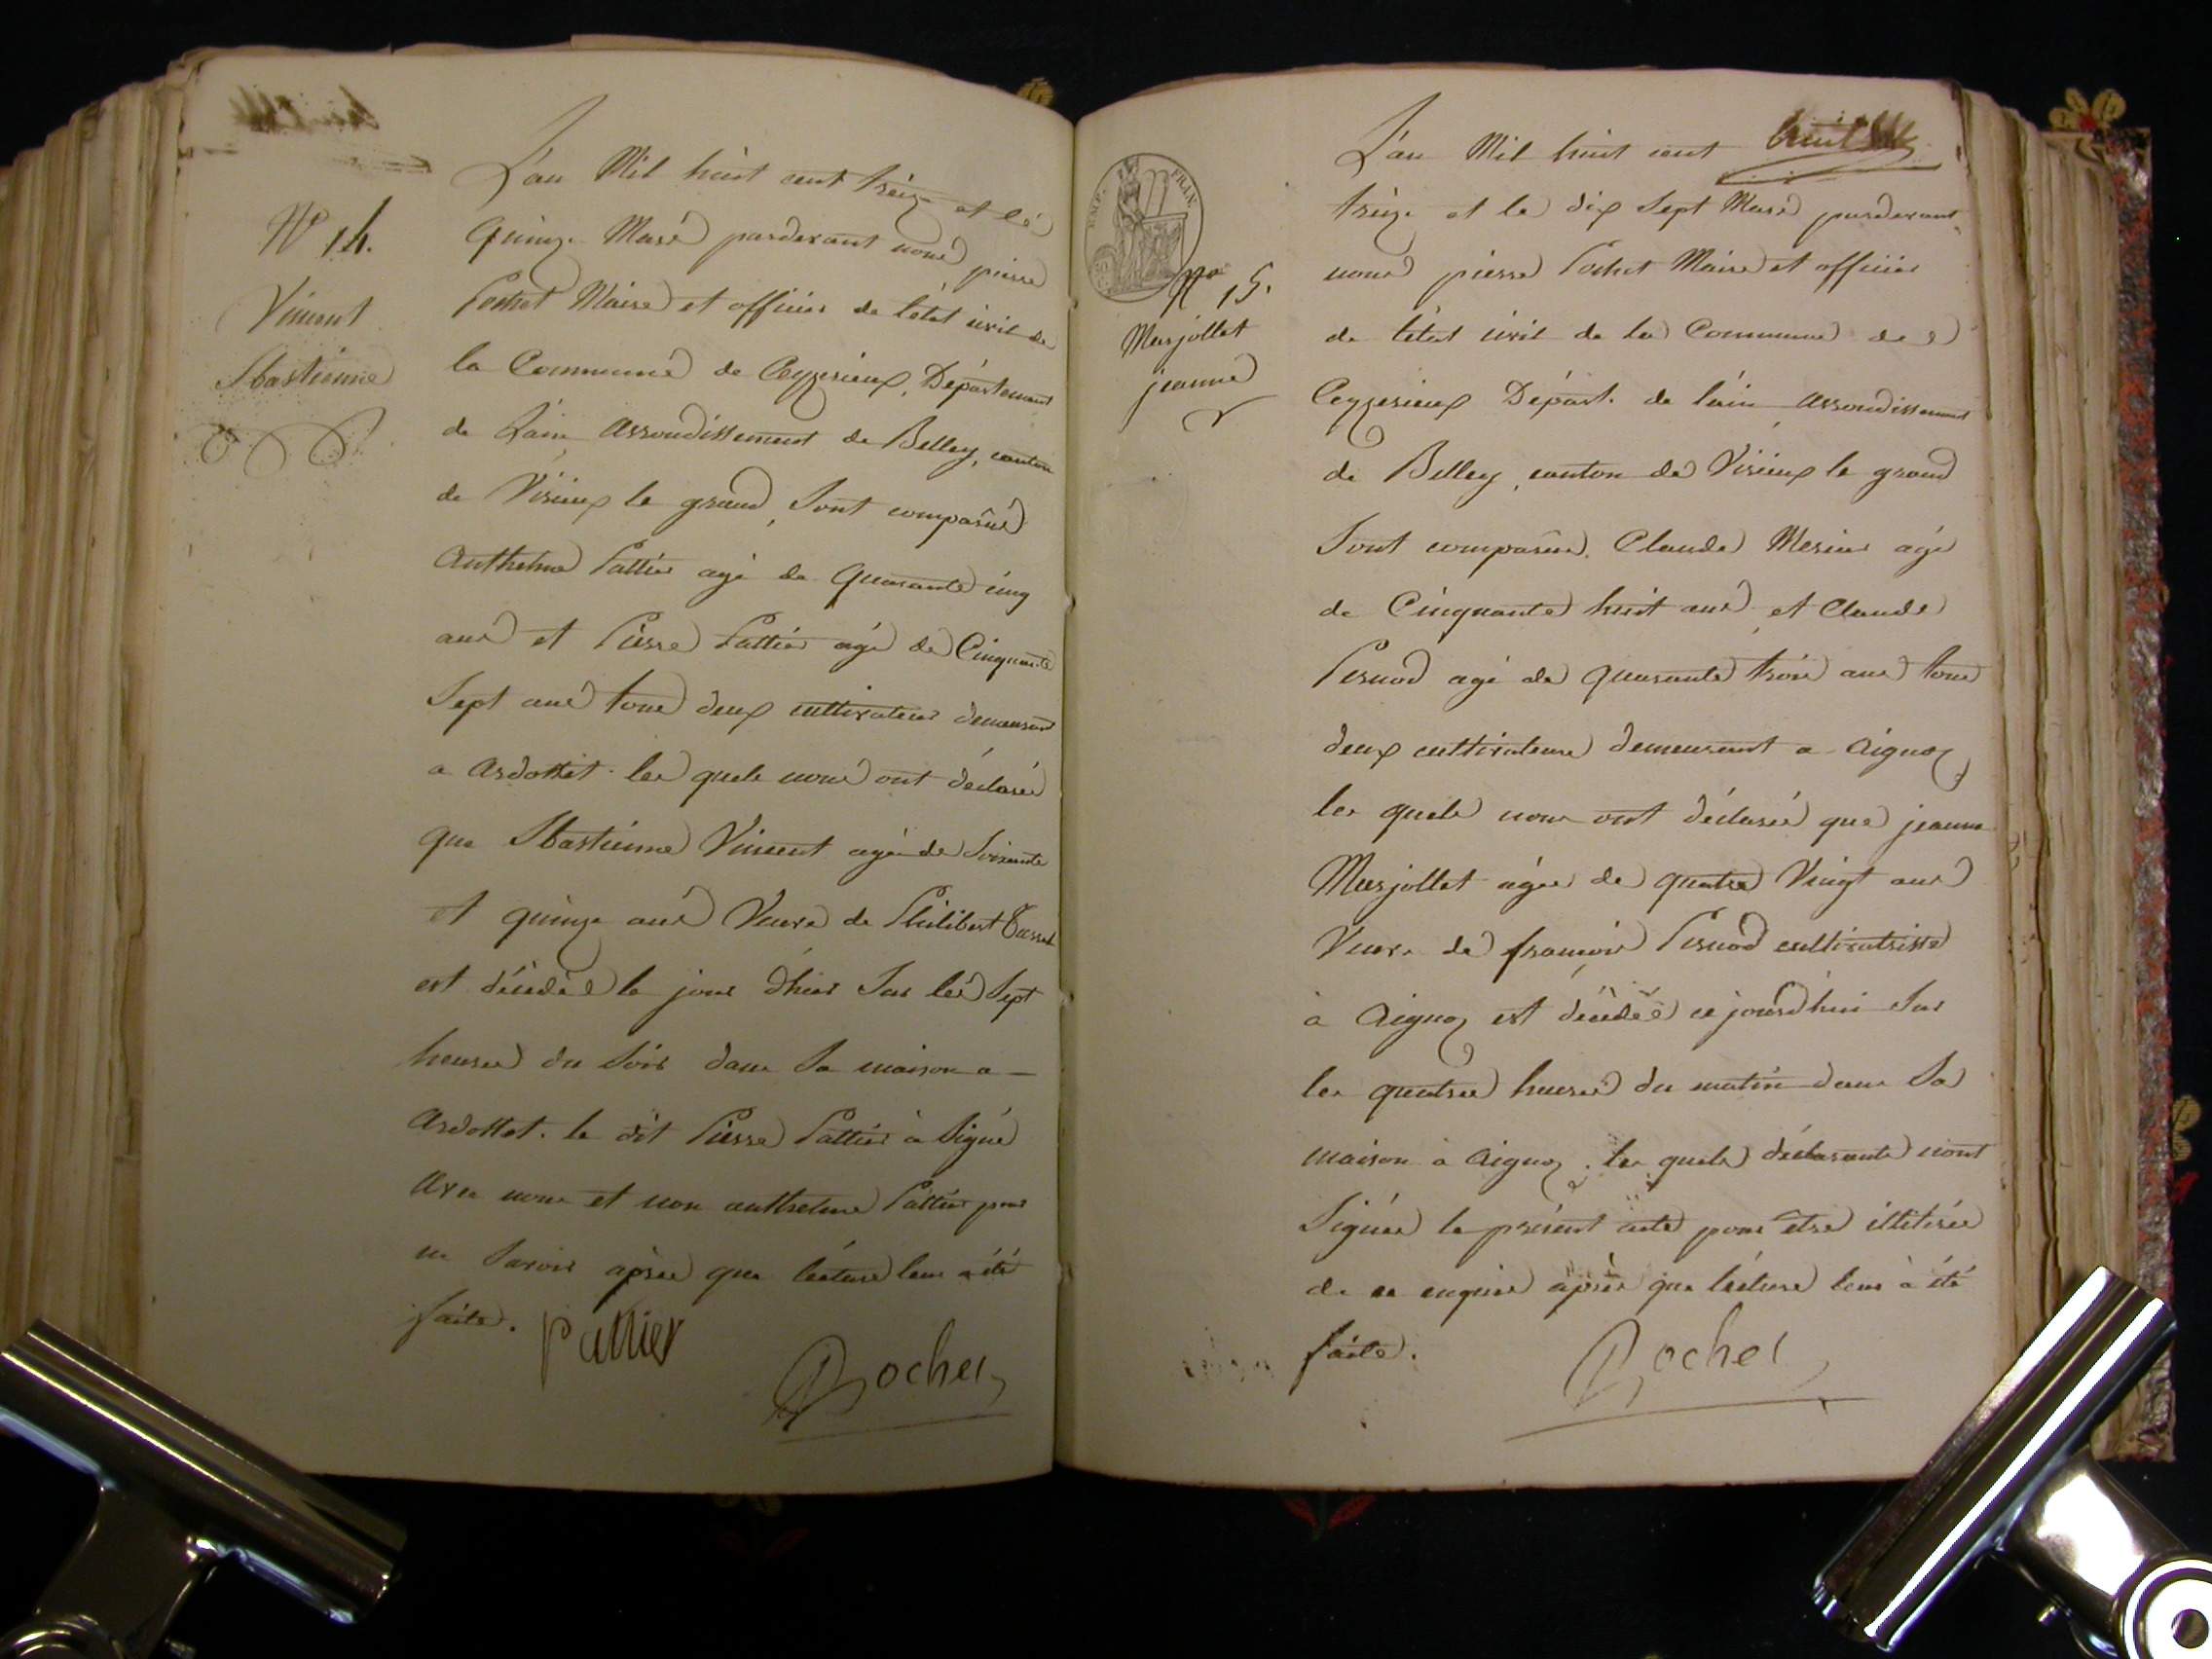 N° 14.
Vincent
Sbastienne
L'an Mil huit cent treize et le
Quinze Mars pardevant nous pierre
Pochet Maire et officier de l'état civil de
la Commune de Ceyzerieux, Département
de L'ain arrondissement de Belley, canton
de Virieux le grand, Sont comparus
Anthelme Pattier agé de Quarante cinq
ans et Pierre Pattier agé de Cinquante
Sept ans tous deux cultivateur demeurant
a Ardottet. les quels nous ont déclarés
que Sbastienne Vincent agée de Soixante
et quinze ans Veuve de Philibert
est décédée le jour d'hier Sur les Sept
heures du Soir dans Sa maison a
Ardottet. le dit Pierre Pattier à Signé
avec nous et non anthelme Pattier pour
ne Savoir après que lécture leur a été
faite. pattier
Pochet
EMP. FRAN.
N° 15.
Marjollet
jeanne
L'an Mil huit cent
treize et le dix Sept Mars pardevant
nous pierre Pochet Maire et officier
de l'état civil de la Commune de
Ceyzerieux Départ. de l'ain arrondissement
de Belley, canton de Virieux le grand
Sont comparus. Claude Mercier agé
de Cinquante huit ans et Claude
Pernod agé de quarante trois ans tous
deux cultivateurs demeurant a Aignoz
les quels nous ont déclarés que jeanne
Marjollet agée de quatre Vingt ans
Veuve de françois Pernod cultivatrisse
à Aignoz est décédée ce jourd'hui Sur
les quatres heures du matin dans Sa
maison à Aignoz. les quels déclarants n'ont
Signés le présent acte pour être illitérés
de ce enquis après que lécture leur à été
faite.
Pochet